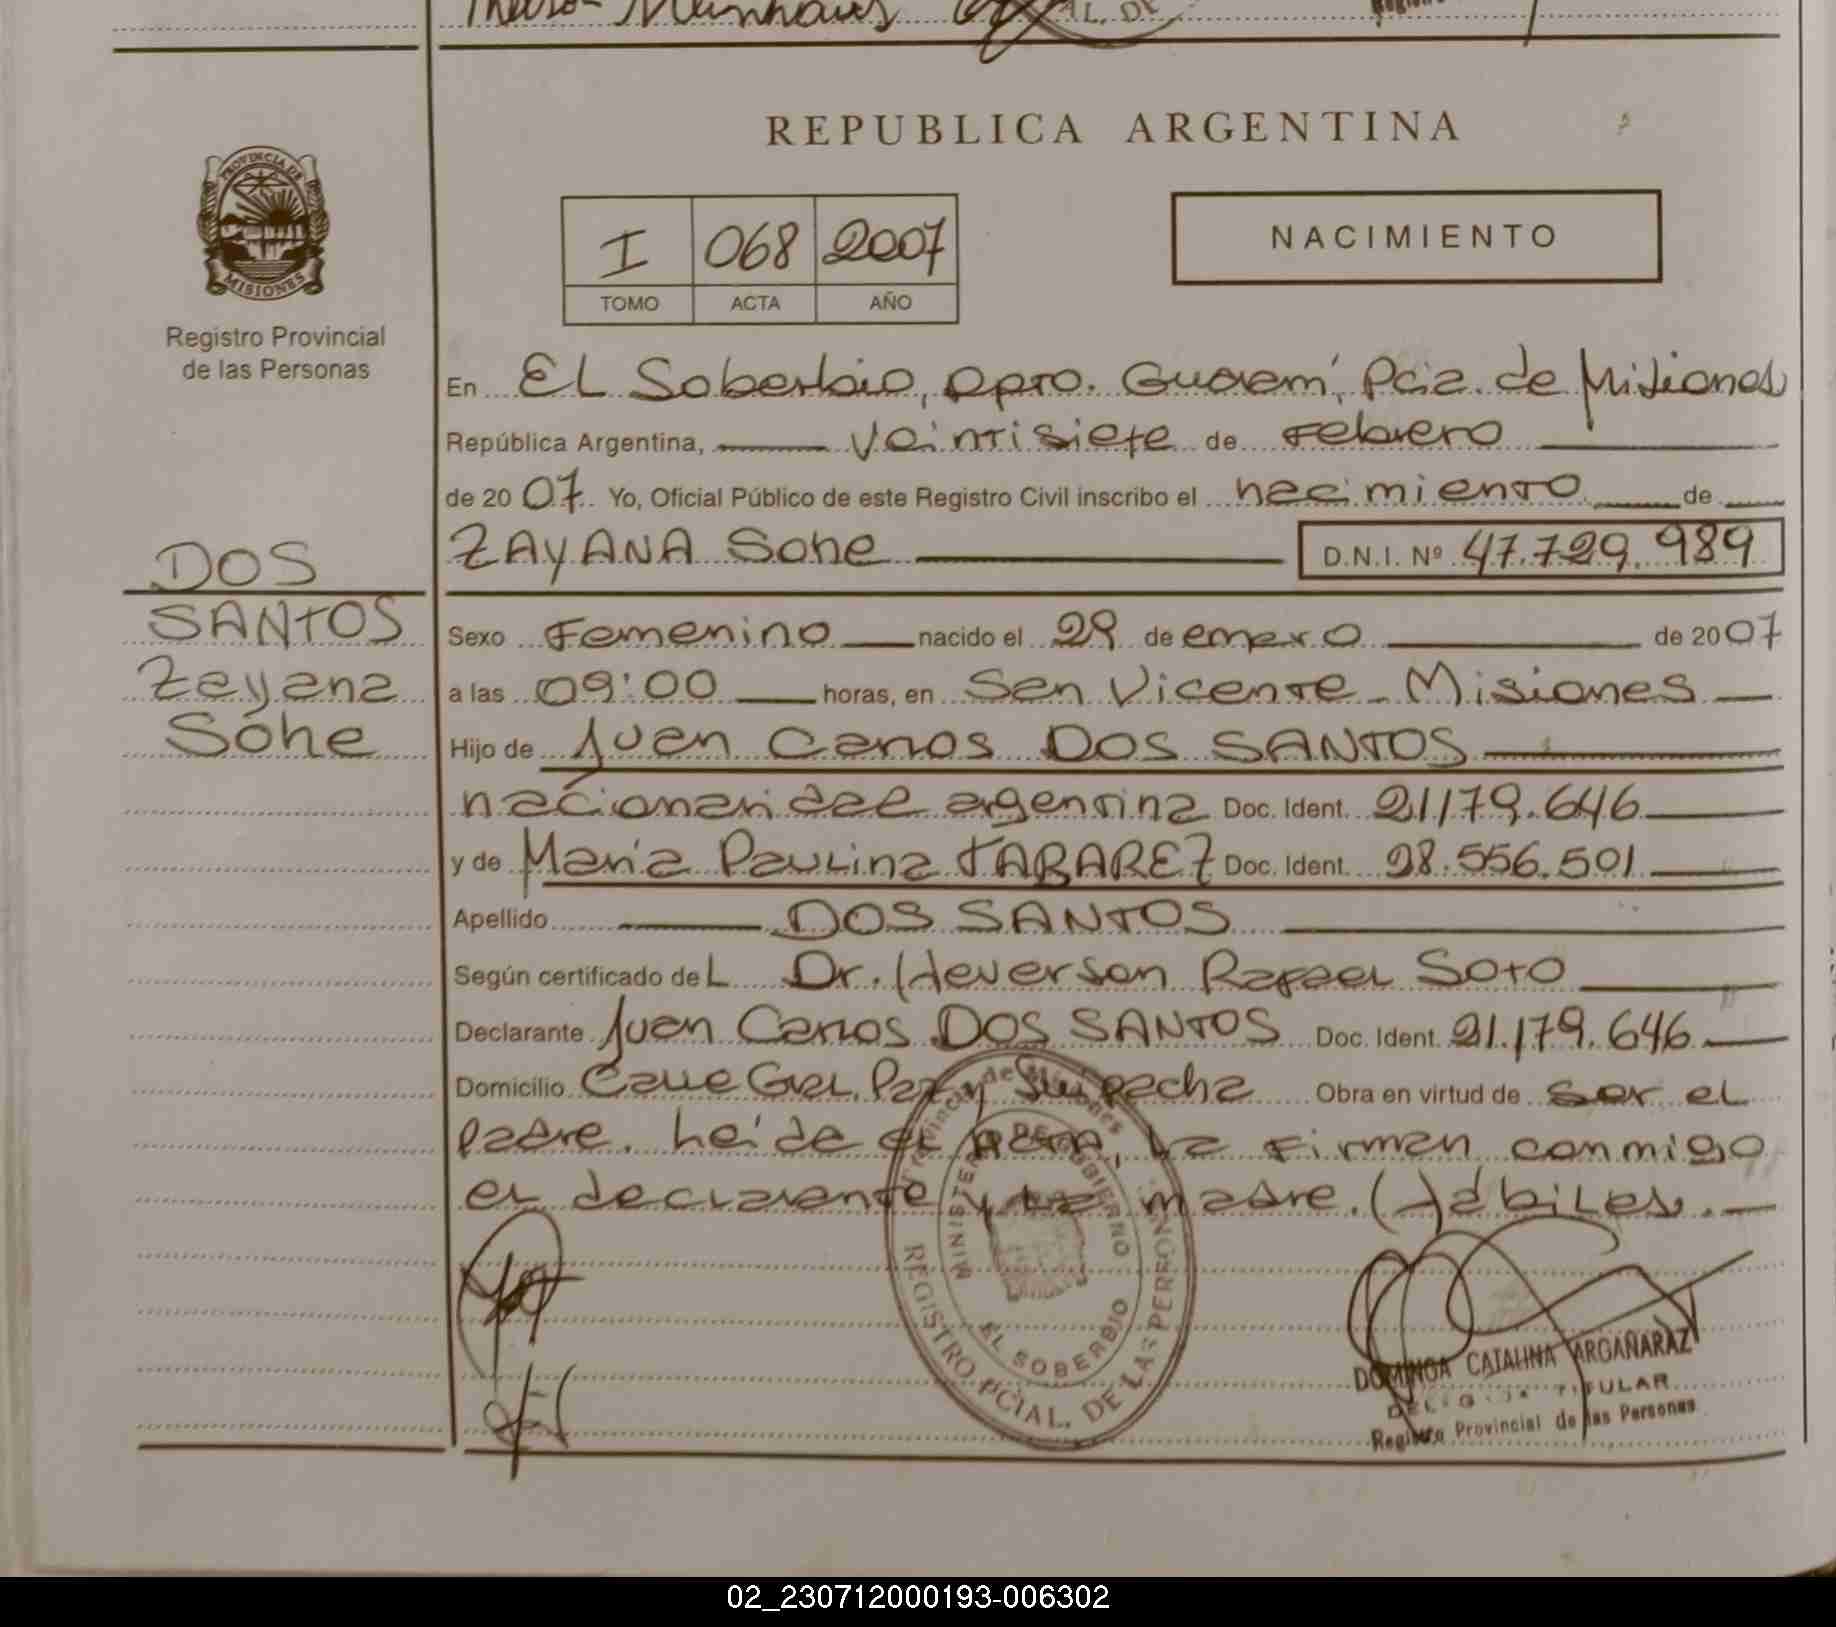 REPUBLICA ARGENTINA
PROVINCIA DE
MISIONES
Registro Provincial
de las Personas
I 068 2007
TOMO ACTA AÑO
NACIMIENTO
En EL Soberbio, Dpto. Guaraní, Pcia. de Misiones
República Argentina, veintisiete de Febrero
de 20 07. Yo, Oficial Público de este Registro Civil inscribo el nacimiento de
ZAYANA Sohe D.N.I. Nº 47.729.989
DOS
SANTOS
Zayana
Sohe
Sexo Femenino nacido el 29 de enero de 20 07
a las 09:00 horas, en San Vicente - Misiones
Hijo de Juan Carlos DOS SANTOS
nacionalidad argentina Doc. Ident. 21.179.646
y de María Paulina TABAREZ Doc. Ident. 28.556.501
Apellido DOS SANTOS
Según certificado del Dr. Heverson Rafael Soto
Declarante Juan Carlos DOS SANTOS Doc. Ident. 21.179.646
Domicilio Calle Gral. Paz y Suipacha Obra en virtud de ser el
padre. Leída el acta, la firman conmigo
el declarante y la madre. Hábiles.
Provincia de Misiones
MINISTERIO DE GOBIERNO
EL SOBERBIO
REGISTRO PCIAL. DE LAS PERSONAS
DOMINGA CATALINA ARGAÑARAZ
DELEGADA TITULAR
Registro Provincial de las Personas
02_230712000193-006302